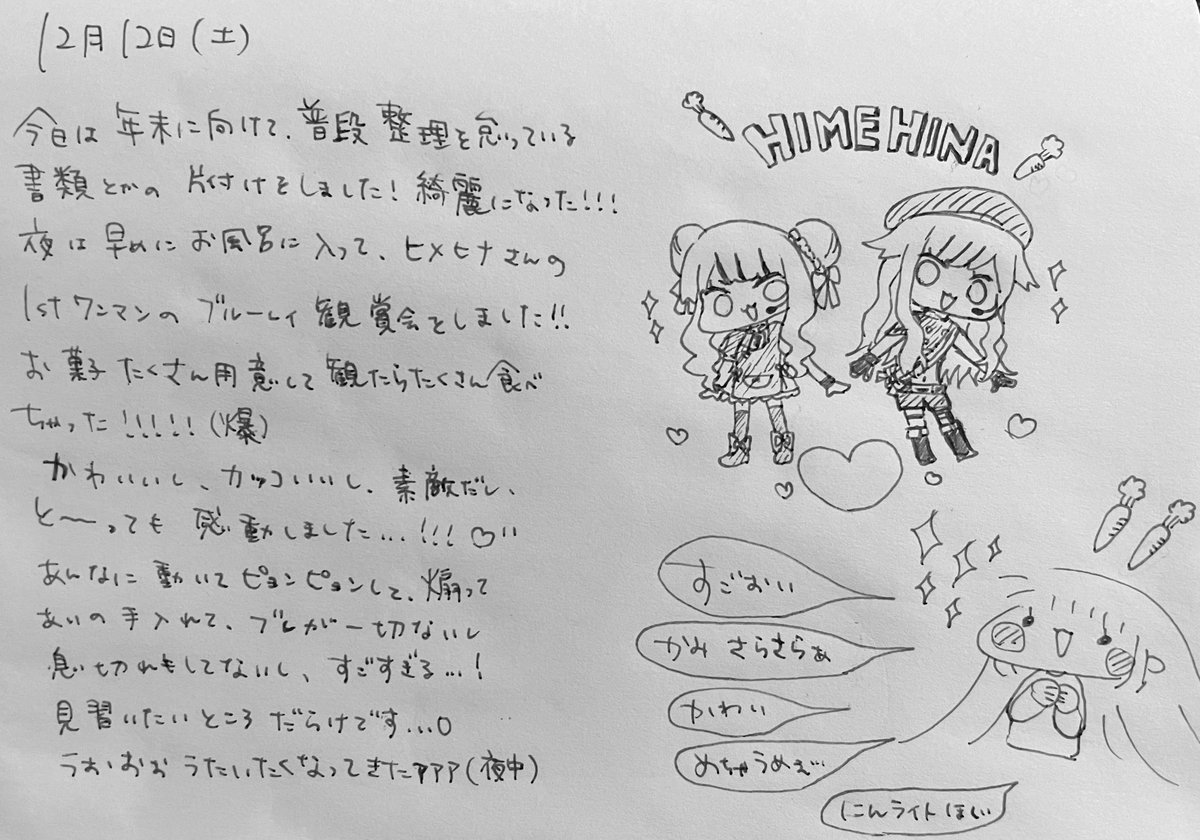 12月12日(土)
今日は年末に向けて、普段整理を怠っている
書類とかの片付けをしました！綺麗になった!!!
夜は早めにお風呂に入って、ヒメヒナさんの
1stワンマンのブルーレイ観賞会をしました!!
お菓子たくさん用意して観たらたくさん食べ
ちゃった!!!!!(爆)
かわいいし、カッコいいし、素敵だし、
と〜っても感動しました...!!!♡''
あんなに動いてピョンピョンして、煽って
あいの手入れて、ブレが一切ないし
息切れもしてないし、すごすぎる...!
見習いたいところだらけです...0
うおおおおうたいたくなってきたァァァ(夜中)
HIMEHINA
すごおい
かみさらさらぁ
かわい
めちゃうめぇ…
にんライトほしい